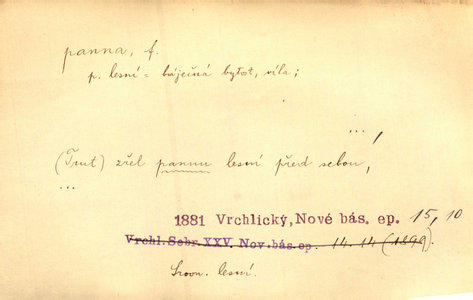 panna, f.
p. lesní = báječná bytost, víla;
...,
(Trut) zřel pannu lesní před sebou,
...
1881 Vrchlický, Nové bás. ep. 15, 10
Vrchl. Sebr. XXV Nov. bás. ep. 14. 14 (1899).
Srovn. lesní.